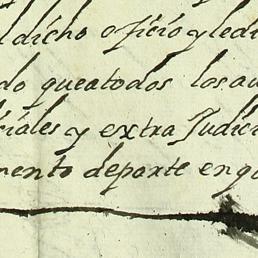 l dicho oficio y le di
do que atodos los au
ciales y extra Judici
mento de parte en q